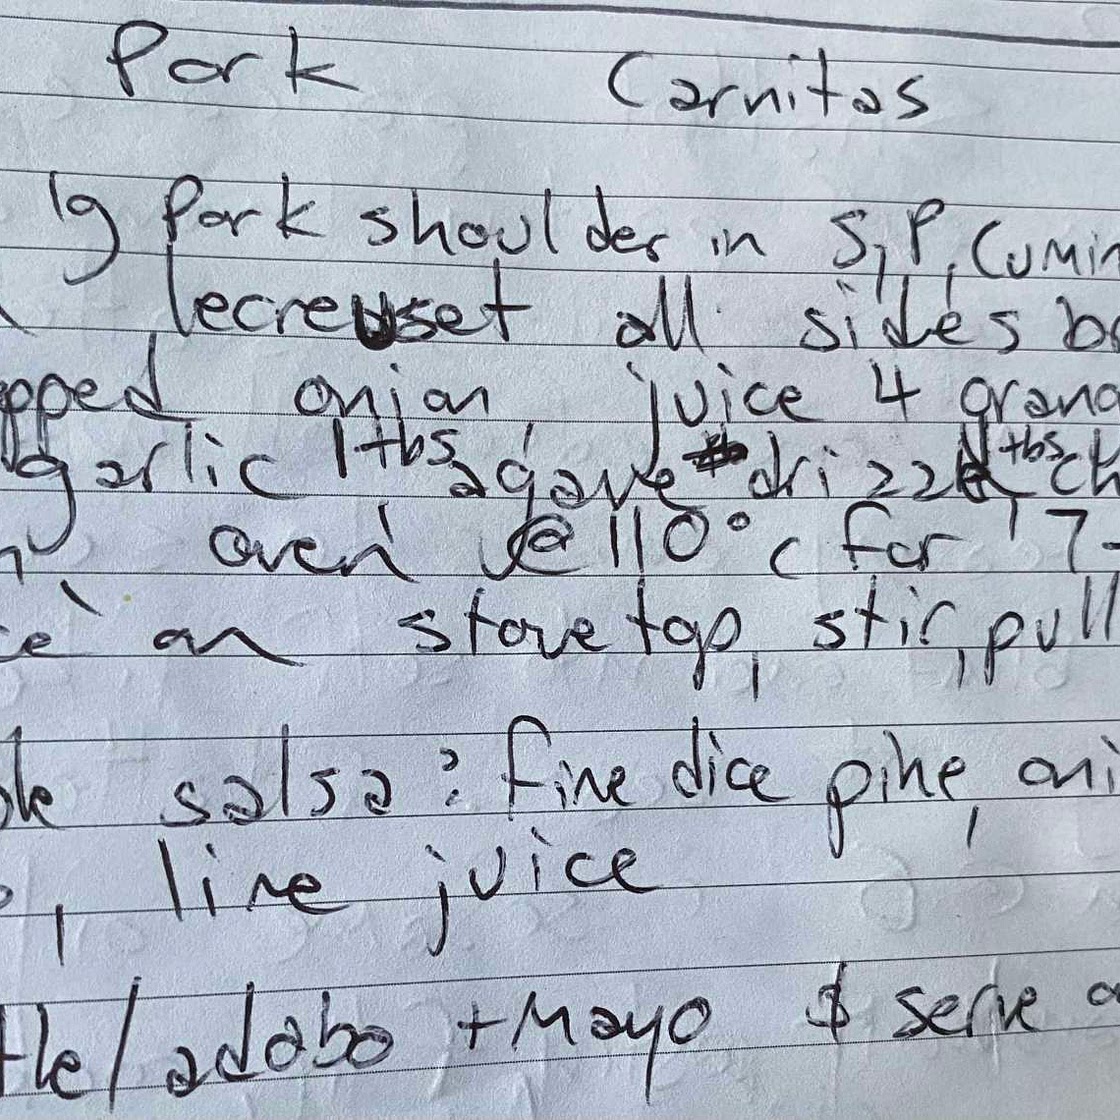 Pork Carnitas
Pork shoulder in S, P, Cumin
lecreuset all sides
onion juice 4
garlic 1 tbs agave drizzle tbs
oven @ 110°c for 7-
on stove top, stir, pull
salsa: fine dice pine, oni
, lime juice
tle/adobo + Mayo & serve